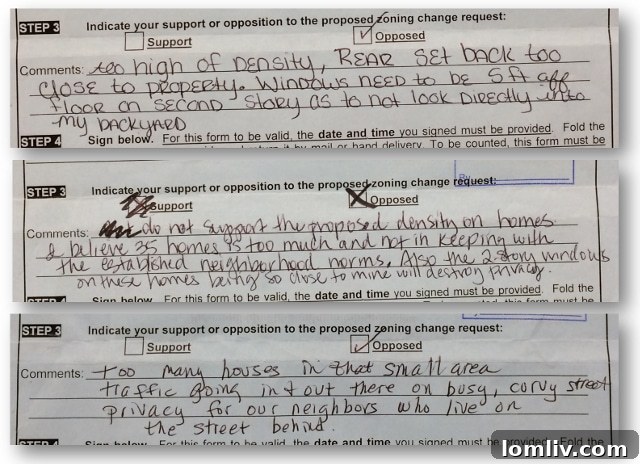 STEP 3 Indicate your support or opposition to the proposed zoning change request:
Support Opposed
Comments: too high of DENSITY, REAR SET BACK too
close to property. WINDOWS NEED to be 5ft off
floor on second story as to not look Directly into
my BACKYARD
STEP 4 Sign below. For this form to be valid, the date and time you signed must be provided. Fold the
mail or hand delivery. To be counted, this form must be
STEP 3 Indicate your support or opposition to the proposed zoning change request:
Support Opposed
Comments: do not support the proposed density on homes.
I believe 35 homes is too much and not in keeping with
the established neighborhood norms. Also the 2 story windows
on these homes being so close to mine will destroy privacy.
Sign below. For this form to be valid, the date and time you signed must be provided. Fold the
STEP 3 Indicate your support or opposition to the proposed zoning change request:
Support Opposed
Comments: too many houses in that small area
traffic going in + out there on busy, curvy street
privacy for our neighbors who live on
the street behind.
STEP 4 Sign below. For this form to be valid, the date and time you signed must be provided. Fold the
lomliv.com